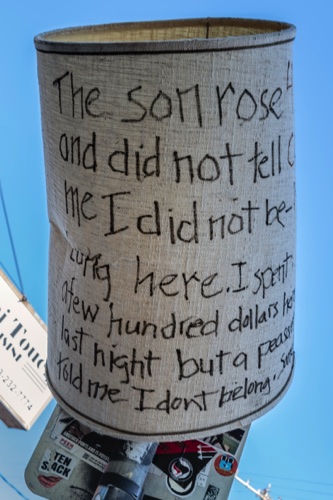 The son rose
and did not tell
me I did not be-
long here. I spent
a few hundred dollars
last night but a peasa
told me I dont belong.
232-7774
TEN
SACK